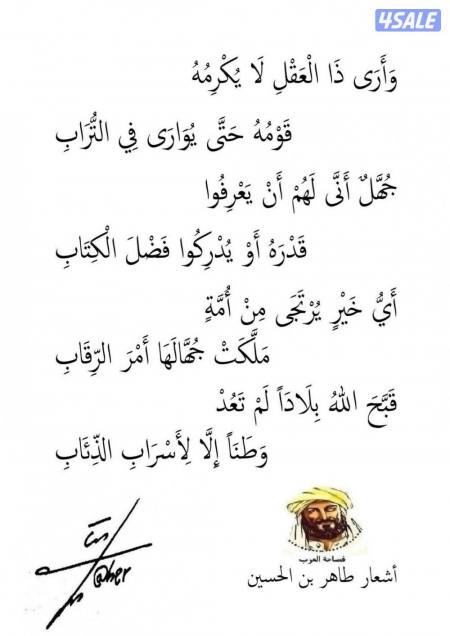 4SALE
وَأَرَى ذَا الْعَقْلِ لَا يُكْرِمُهُ
قَوْمُهُ حَتَّى يُوَارَى فِي التُّرَابِ
جُهَّلٌ أَنَّى لَهُمْ أَنْ يَعْرِفُوا
قَدْرَهُ أَوْ يُدْرِكُوا فَضْلَ الْكِتَابِ
أَيُّ خَيْرٍ يُرْتَجَى مِنْ أُمَّةٍ
مَلَّكَتْ جُهَّالَهَا أَمْرَ الرِّقَابِ
قَبَّحَ اللهُ بِلَادَاً لَمْ تَعُدْ
وَطَنَاً إِلَّا لِأَسْرَابِ الذِّئَابِ
فصاحة العرب
أشعار طاهر بن الحسين